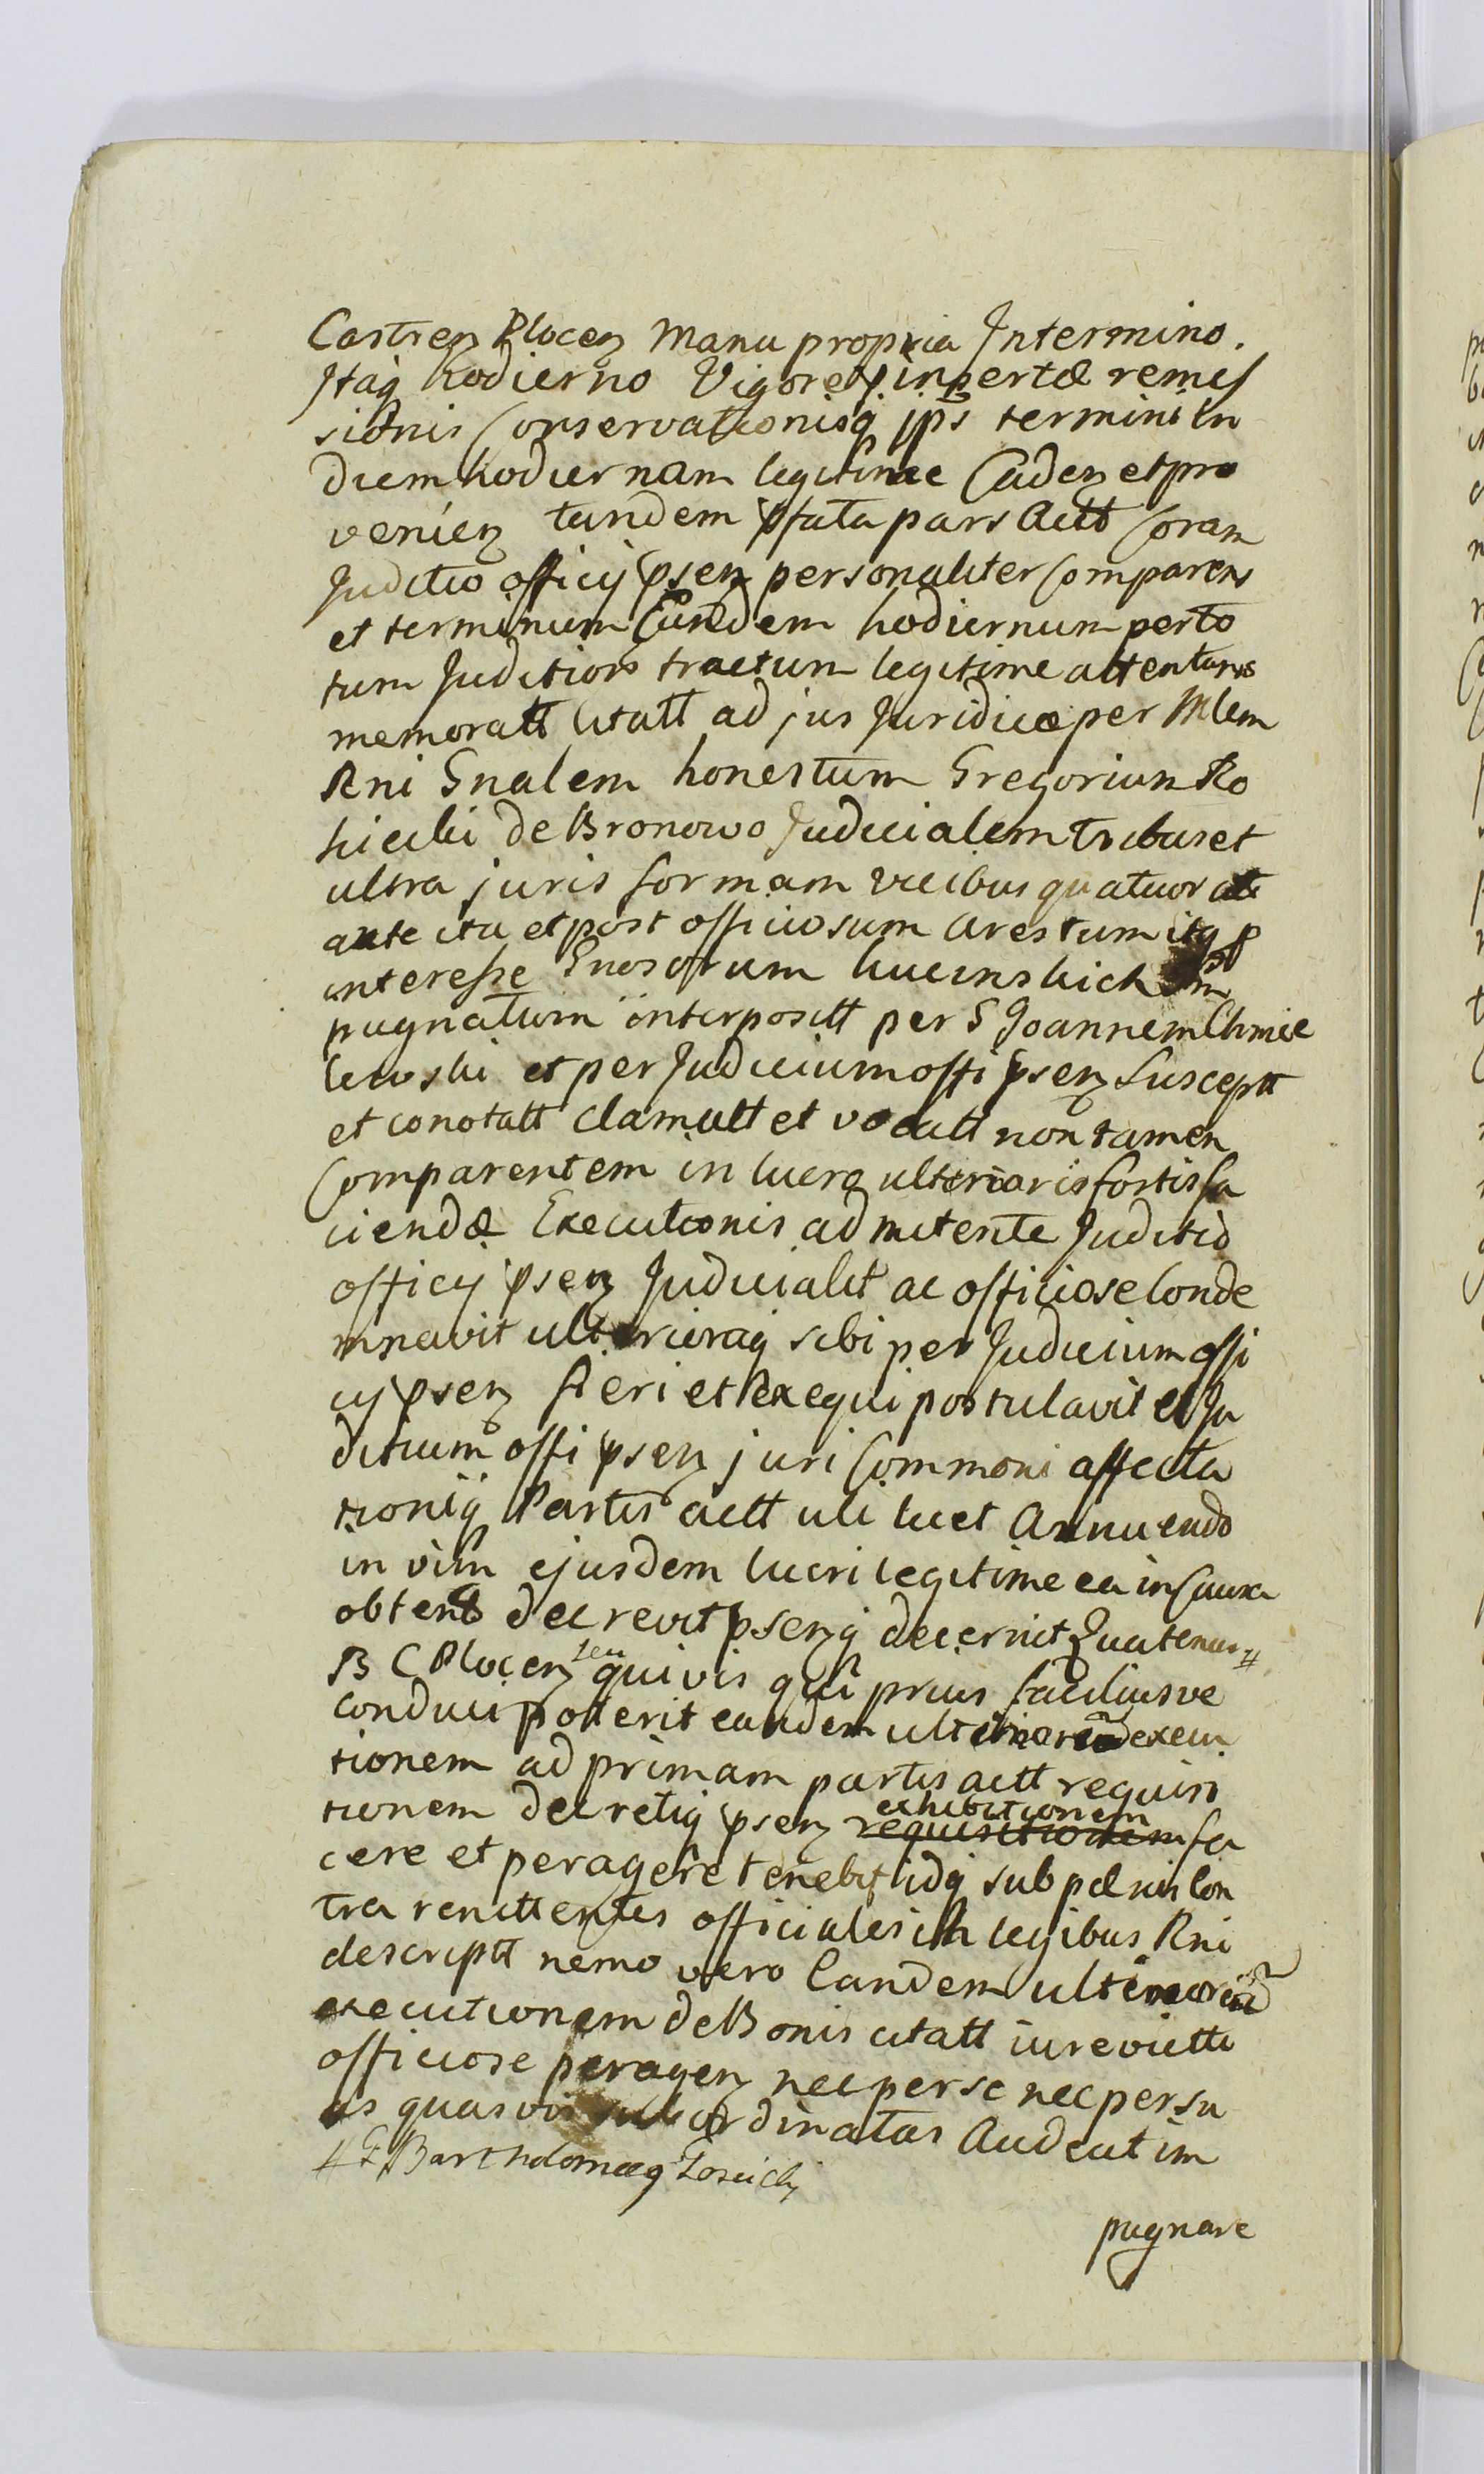 Castren Plocen Manu propria Intermino.
Itaq hodierno Vigore p. insertæ remis
sionis Conservationisq ips termini in
diem hodiernam legitime Caden et pro
venien tandem pfata pars Actt Coram
Juditio officij psen personaliter Comparens
et terminum Eundem hodiernum per to
tum Juditiors tractum legitime attentans
memoratt Citatt ad jus Juridice per Mlem
Rni Gnalem honestum Gregorium Ro
sicki de Bronowo Judicialem tribus et
ultra juris formam vicibus quatuor
ante ita et post officiosum Arestum itq p
interesse Gnosorum im
pugnatum interpositt per G Joannem Chmie
lewski et per Judicium offi psen Susceptt
et conotatt clamatt et vocatt non tamen
Comparentem in lucro ulterioris fortis fa
ciendæ Executionis admitente Juditio
officij psen Judicialit ac officiose Conde
mnavit ulterioraq sibi per Judicium offi
cij psen fieri et exequi postulavit et Ju
ditium offi psen juri Commoni affecta
tioniq Partis actt uti licet Annuendo
in vim ejusdem lucri legitime ea in Causa
obtens decrevit psenq decernit Quatenus #
B C Plocen seu quivis qui prius faciliusve
conduci potterit eandem ulteriorem execu
tionem ad primam partis actt requisi
tionem decretiq psen exhibitionem requisitionem fa
cere et peragere tenebit idq sub pænis Con
tra renittentes officiales in legibus Rni
descriptt nemo vero Eandem ulteriorem
executionem de Bonis citatt iure victti
officiose peragen nec per se nec per su
as quasvis subordinatas Audeat im
# G Bartholomæq
pugnare